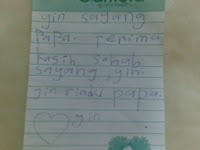 yin sayang
papa. Terima
kasih sebab
sayang yin.
yin rindu papa.
yin